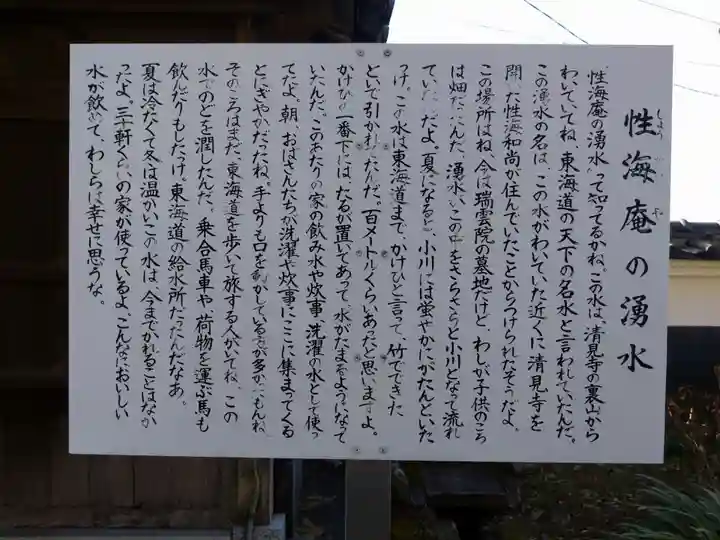 性海庵の湧水
しょう
性海庵の湧水って知ってるかね。この水は、清見寺の裏山から
わいていてね、東海道の天下の名水と言われていたんだ。
この湧水の名は、この水がわいていた近くに清見寺を
開いた性海和尚が住んでいたことからつけられたそうだよ。
この場所はね、今は瑞雲院の墓地だけど、わしが子供のころ
は畑だったんだ。湧水はこの中をさらさらと小川となって流れ
ていたんだよ。夏になると、小川には蛍やかにがたんといた
っけ。この水は東海道まで、かけひと言って、竹でできた
といで引かれたんだ。一百メートルくらいあったと思いますよ。
かけひの一番下には、たるが置いてあって、水がたまるようになって
いたんだ。このあたりの家の飲み水や炊事、洗濯の水として使っ
てたよ。朝、おばさんたちが洗濯や炊事にここに集まってくる
とにぎやかだったね。手よりも口を動かしている方が多かったもんね。
そのころはまだ、東海道を歩いて旅する人がいてね、この
水でのどを潤したんだ。乗合馬車や、荷物を運ぶ馬も
飲んだりもしたっけ。東海道の給水所だったんだなあ。
夏は冷たくて冬は温かいこの水は、今までかれることはなか
ったよ。三十軒くらいの家が使っているよ、こんなにおいしい
水が飲めて、わしらは幸せに思うな。